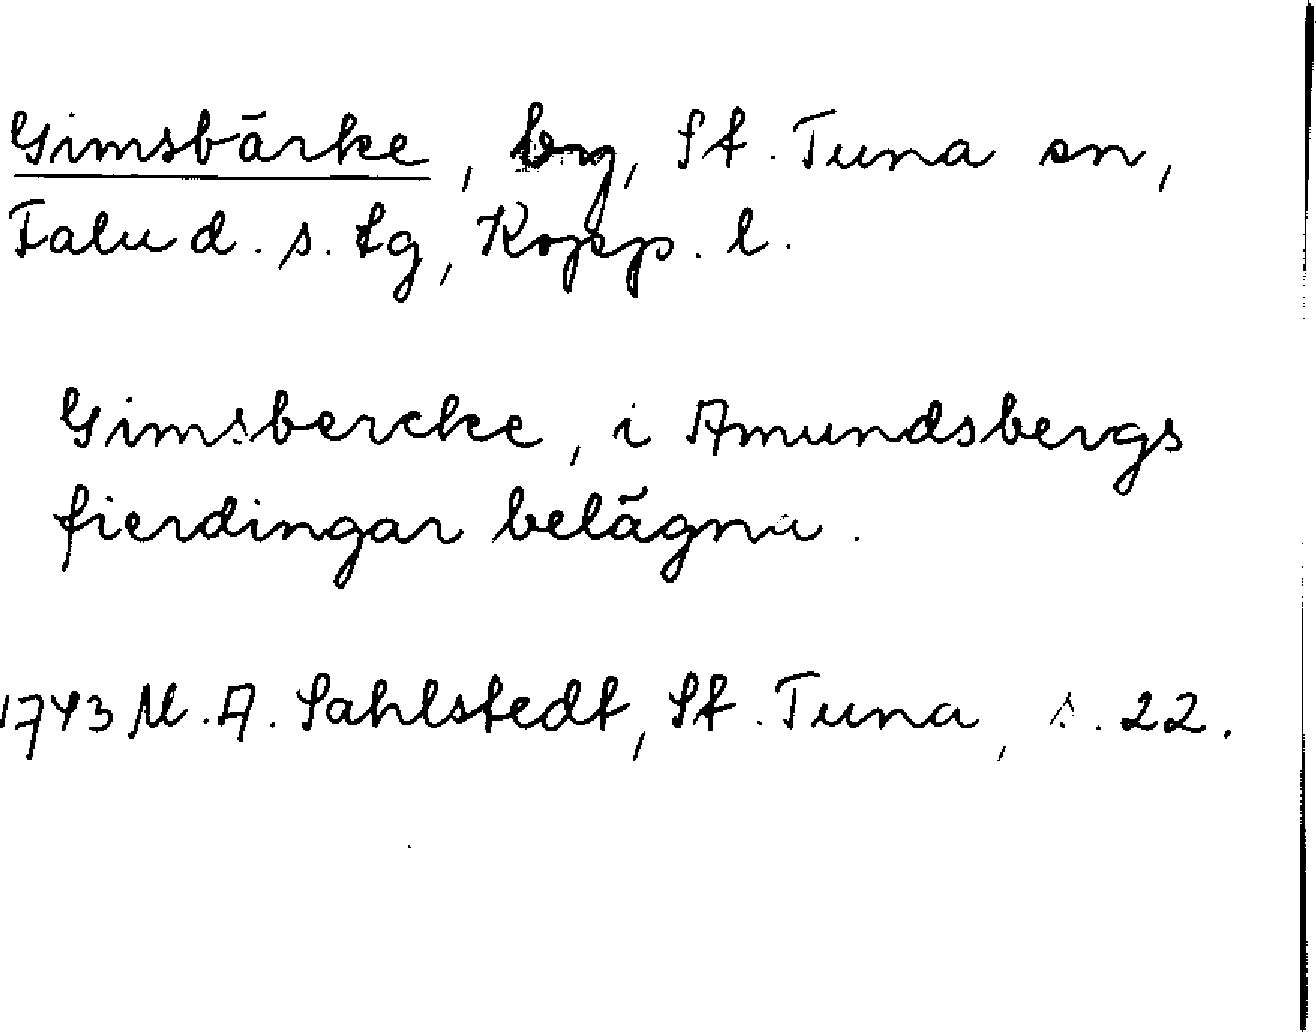 Gimsbärke, by, St. Tuna sn,
Falu d. s. tg, Kopp. l.
Gimsbercke, i Amundsbergs
fierdingar belägna.
1743 M. A. Sahlstedt, St. Tuna, s. 22.